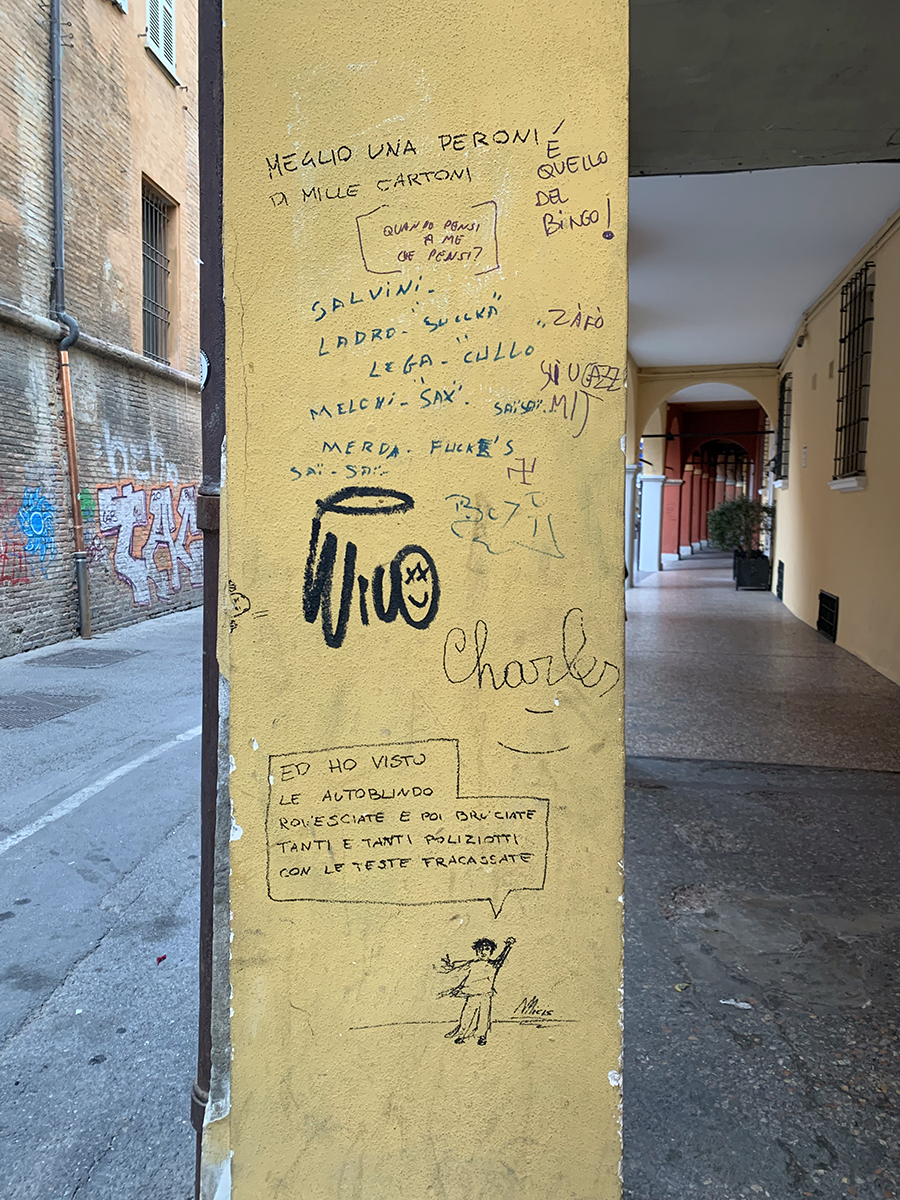 MEGLIO UNA PERONI
DI MILLE CARTONI
É
QUELLO
DEL
BiNGO!
QUANDO PENSI
A ME
CHE PENSI?
SALViNi-
LADRO-"SUCCKA"
LEGA-"CULLO
MELCHi-"SAX"-
SAÏSAÏ-
MERDA- FUCKE'S
SAÏ-SAÏ-
"ZÁFÒ
MIJ
NiCO
Charles
ED HO VISTO
LE AUTOBLINDO
ROVESCIATE E POI BRUCIATE
TANTI E TANTI POLIZIOTTI
CON LE TESTE FRACASSATE